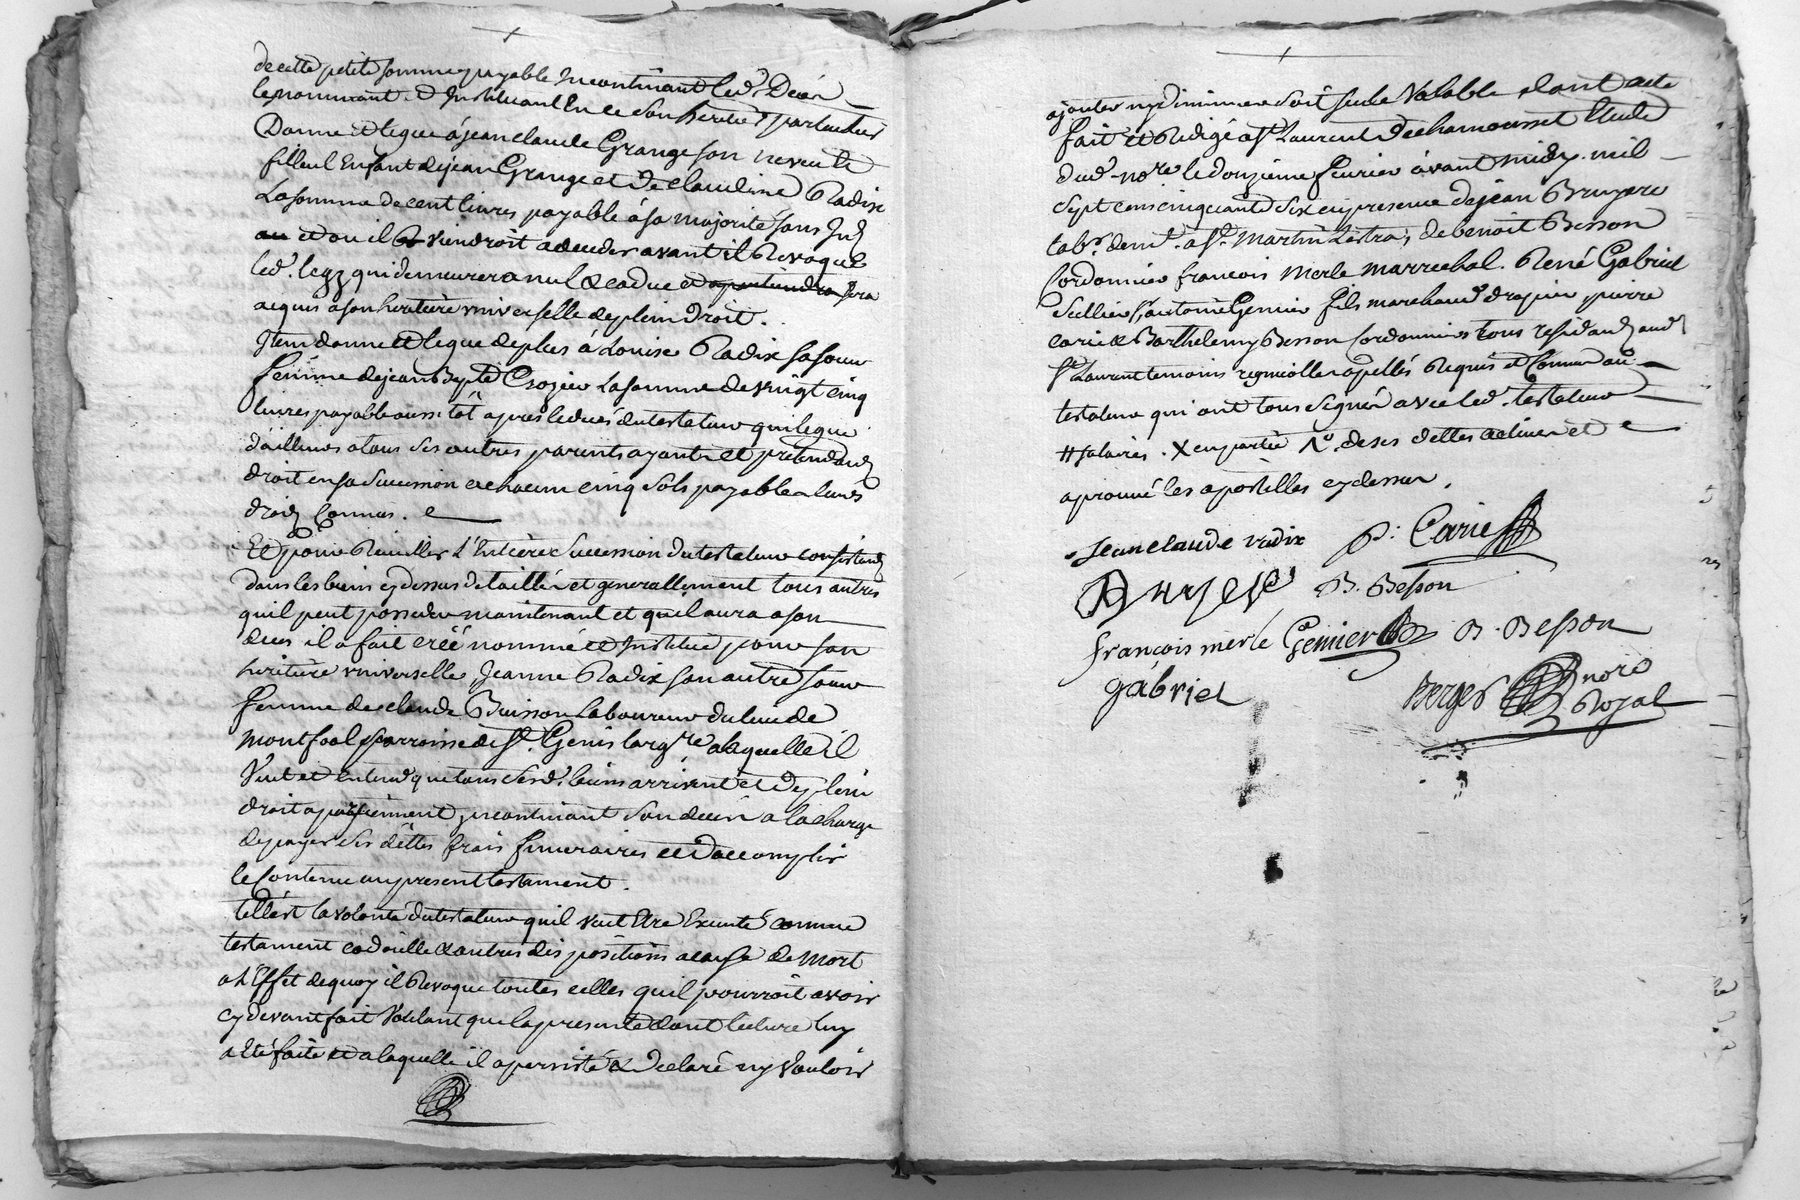 de cette petite somme payable incontinant led. Décés
le nommant et instituant en ce son heritier particulier
Donne et legue á jean claude Grange son neveu et
filleul Enfant de jean Grange et de claudine Radix
La somme de cent livres payable á sa majorité sans
et ou il viendroit a deceder avant il Revoque
led. legz qui demeurera nul & caduc et apartiendra sera
acquis a son heritiere universelle de plein droit.
Item donne et legue de plus á Louise Radix sa soeur
femme de jean Bapte Crozier La somme de vingt cinq
livres payable aussi tôt apres le deces du testateur qui legue
d'ailleurs a tous ses autres parents ayants et pretendants
droit en sa succession a chacun cinq sols payable a leurs
droits connus.
Et pour Recueillir L'Entiere succession du testateur consistant
dans les biens cy dessus detaillés et generallement tous autres
qu'il peut posseder maintenant et quil aura a son
deces il a fait créé nommé et institué pour son
heritiere universelle, Jeanne Radix son autre soeur
femme de claude Buisson Laboureur du lieu de
montfool parroisse de St. Genis largre a laquelle il
Veut et entend que tous sesd. biens arrivent et de plein
droit apartiennent, incontinant son deces a la charge
de payer ses dêttes frais funeraires et d'accomplir
le contenu au present testament.
telle est la volonté du testateur qu'il veut Etre Executé comme
testament codicille & autres dispositions a cause de mort
a L'Effet de quoy il Revoque toutes celles qu'il pourroit avoir
cy devant fait Voulant que la presente dont lecture luy
a Eté faite et a laquelle il a persisté & declaré ny vouloir
ajouter ny diminuer soit seule Valable dont acte
fait et Redigé a St. Laurent de chamousset Etude
dud. nore le douzieme fevrier avant midy. mil
sept cens cinquante six en presence de jean Bruyere
demt. a St. Martin Lestra, de benoit Besson
Cordonnier françois Merle marrechal. René Gabriel
Sellier, antoine Genier fils marchand drapier, pierre
carie & Barthelemy Besson cordonniers tous residants aud.
St. Laurent temoins apellés Requis et connus au
testateur qui ont tous signés avec led. testateur
# salaires. X en partie No. de ses dettes actives et
aprouvé les apostilles cy dessus.
jean claude radix P: Carie
B. Besson
françois merle Genier B. Besson
gabriel Berger nore
Royal